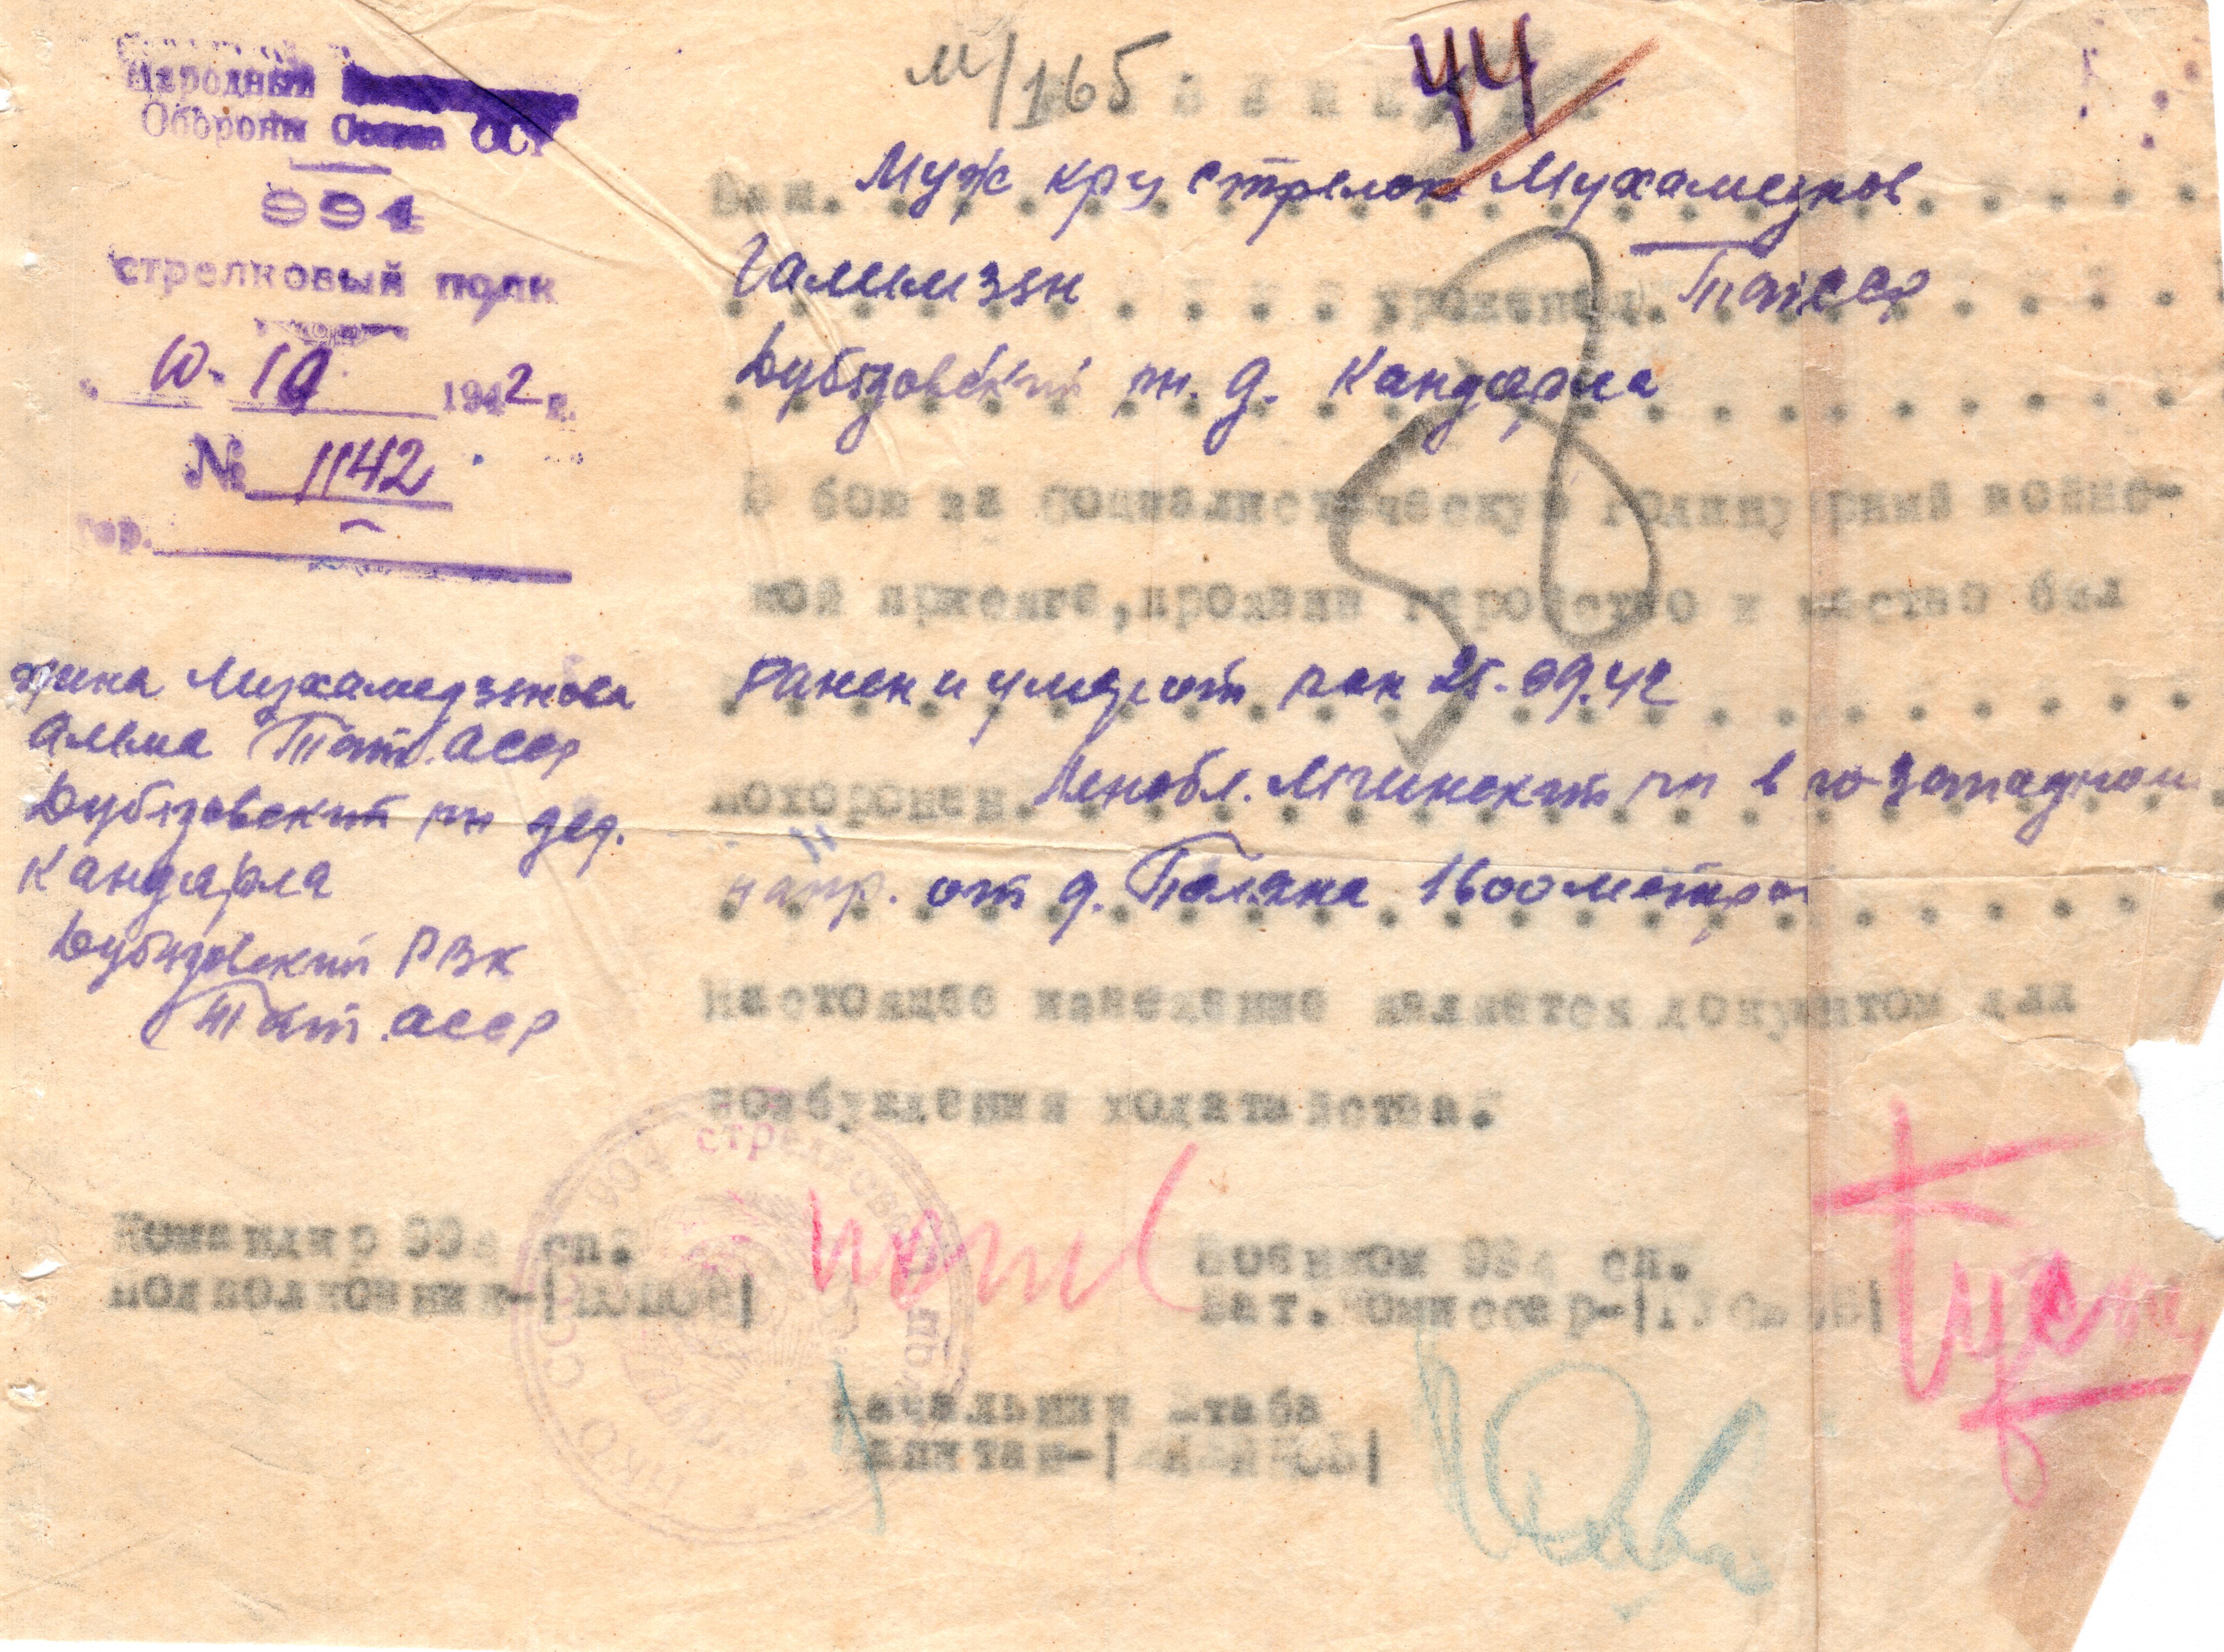 Народный
Обороны Союза ССР
994
стрелковый полк
10. 10 1942 г.
№ 1142
гор.
жена Мухамедзянова
Альма Тат. АССР
Дубязовский рн дер.
Кандарла
Дубязовский РВК
Тат. АССР
М/165
44
Ваш. Муж кр-ц стрелок Мухамедзянов
уроженец. ТатССР
Дубязовский рн. д. Кандарла
В бою за Социалистическую Родину, верный воинс-
кой присяге, проявив геройство и мужество был
Ранен и умер от ран 25.09.42
похоронен. Ленобл. Мгинский рн в ю-западном
напр. от д. Поляна 1600 метров
Настоящее извещение является документом для
возбуждения ходатайства.
Командир 994 сп.
подполковник-|ПОПОВ|
Военком 994 сп.
Бат. Комиссар-|ГУСЕВ|
Начальник Штаба
Капитан-
НКО СССР 994 стрелковый полк